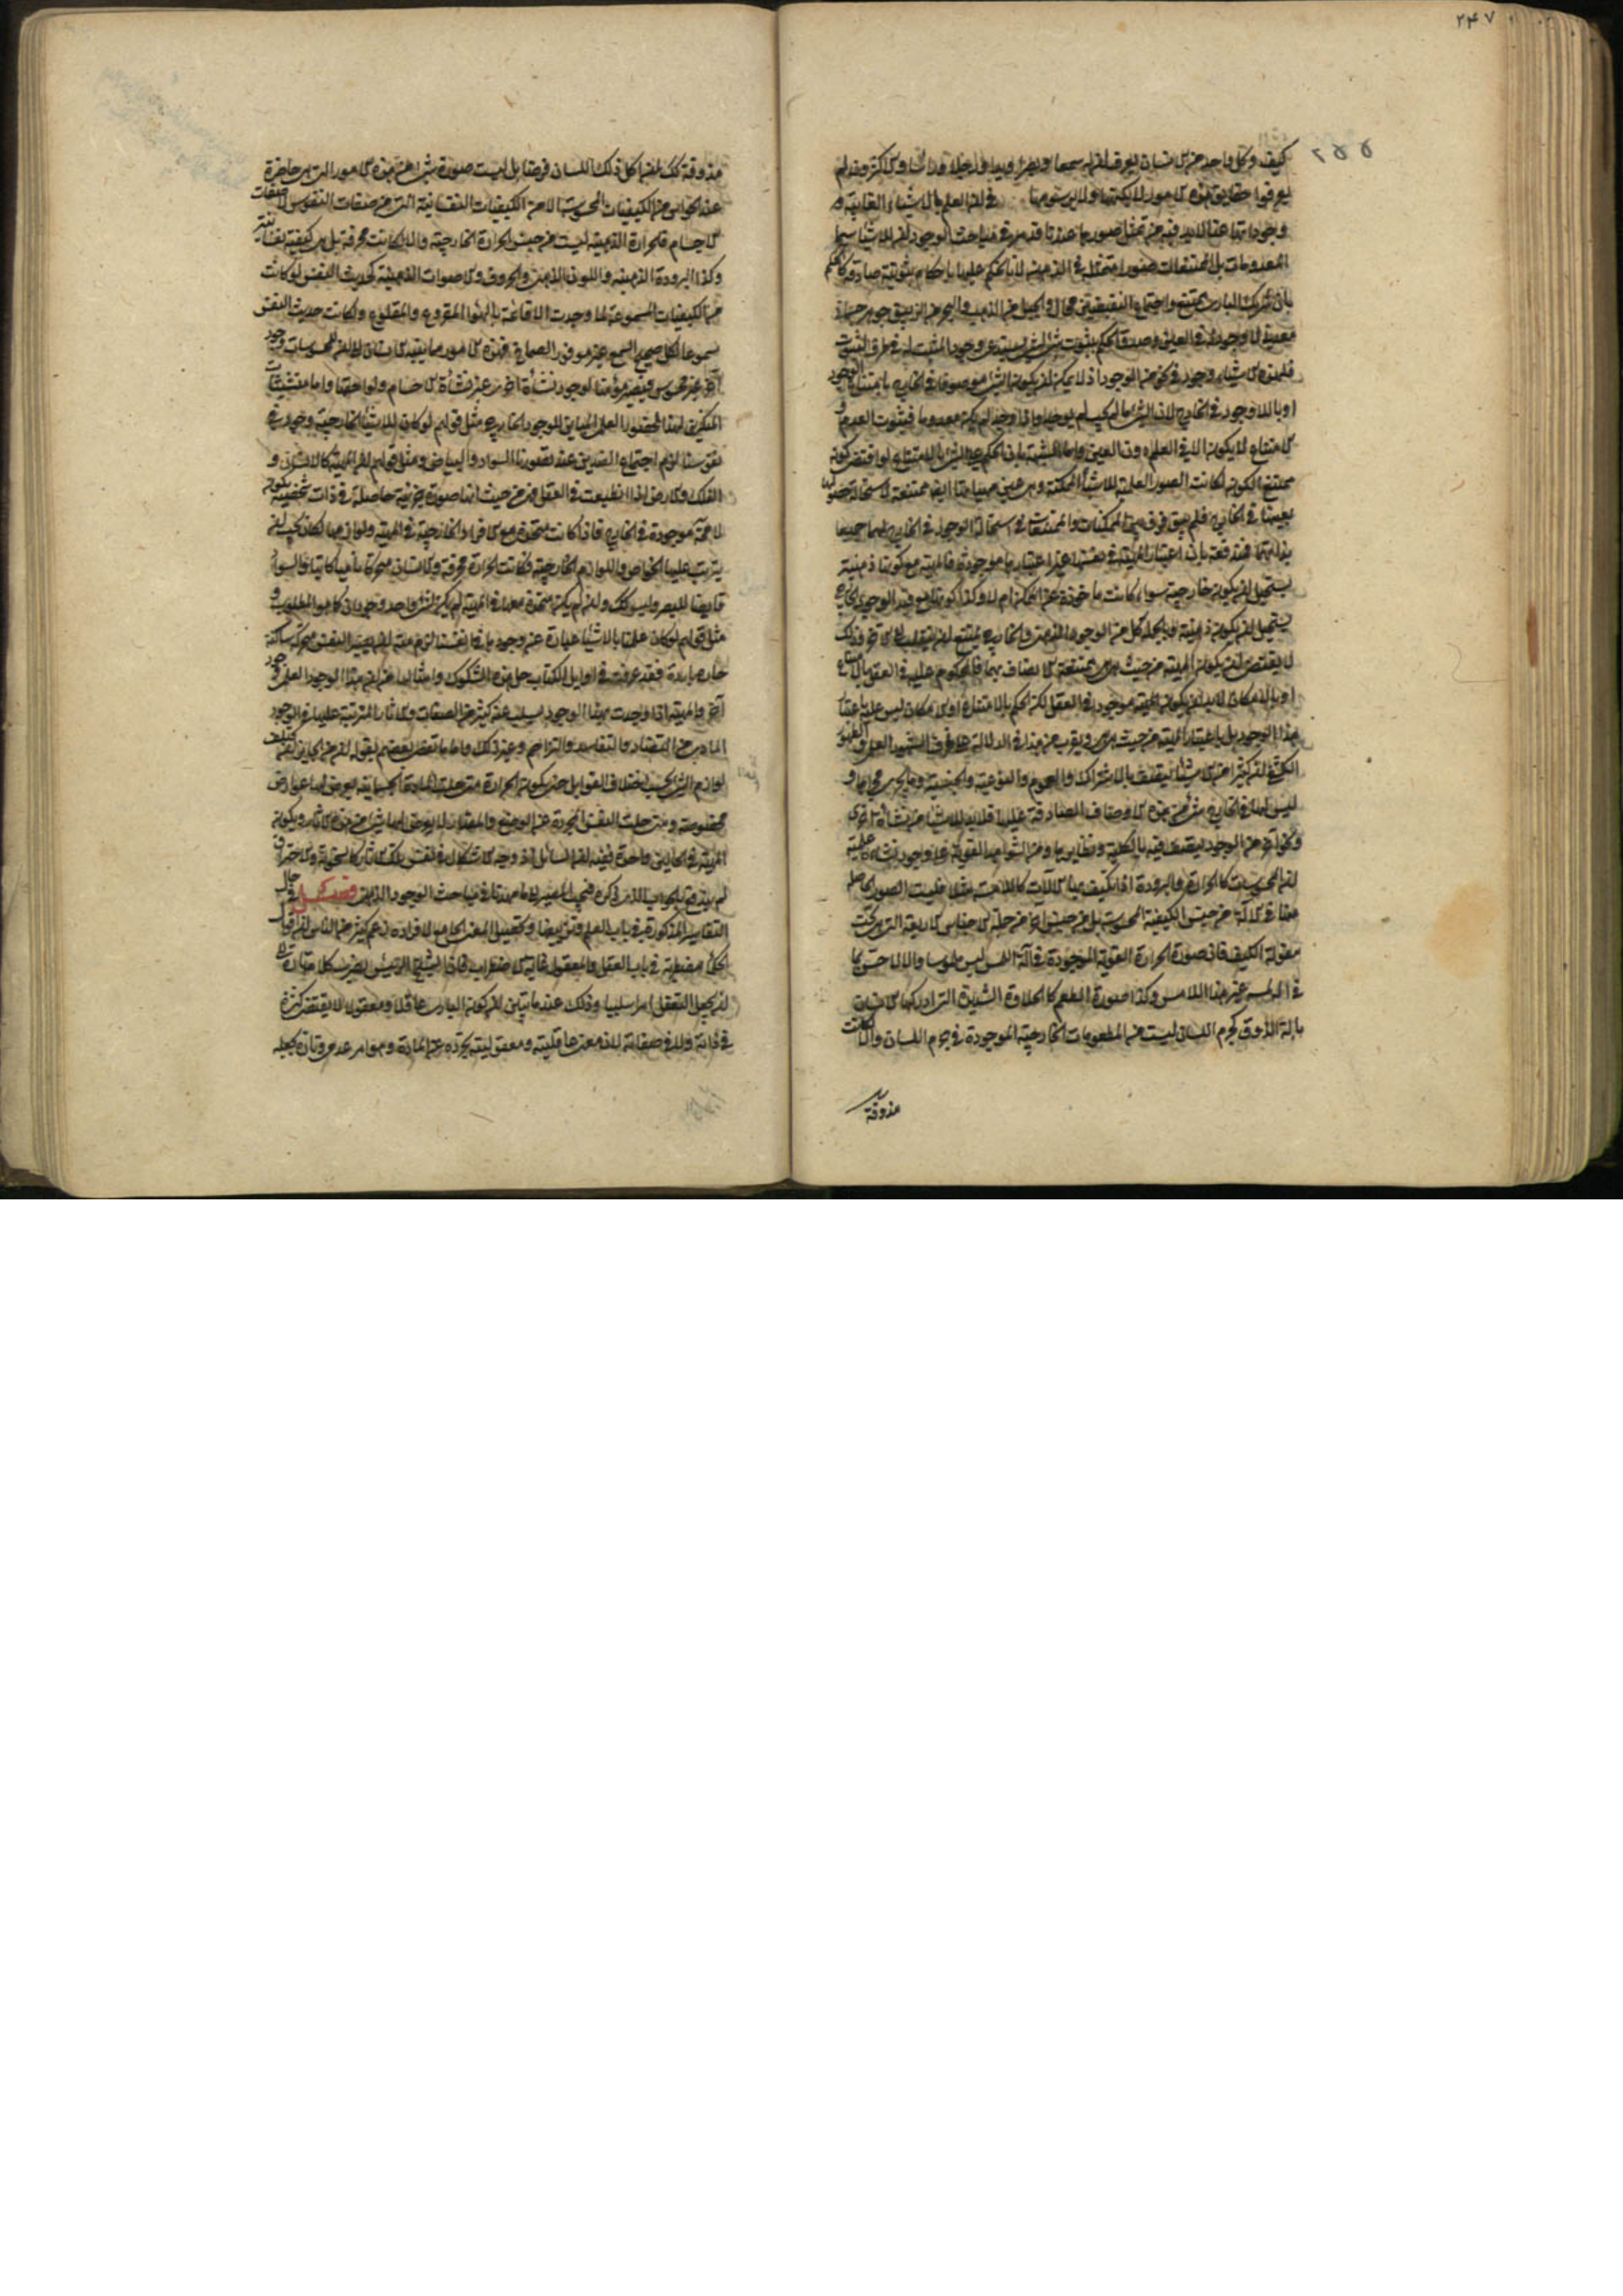 ٢٤٧
٢٥٥
كيف وكل واحد من الانسان يعرف ان له سمعا وبصرا ويدا ورجلا وراسا والاكثرون لم
يعرفوا حقايق هذه الامور لا بكنهها ولا برسومها في ان العلم بالاشياء الغايبة
وجوداتها عنا لابد فيه من تمثل صورها عندنا قد مر في مباحث الوجود ان للاشياء سيما
المعدومات بل الممتنعات صورا متمثلة في الذهن لانا نحكم عليها باحكام ثبوتية صادقة كالحكم
بان شريك الباري ممتنع واجتماع النقيضين محال والجبل من الذهب والبحر من الزيبق جوهر جماد
معدني لا وجود له في العين وصدق الحكم بثبوت شي لشي يستدعي وجود المثبت له في ظرف الثبوت
فلهذه الاشياء وجود في نحو من الوجود اذ لا يمكن ان يكون الشي موصوفا في الخارج بامتناع الوجود
او باللاوجود في الخارج لان الشي ما لم يجب لم يوجد واذا وجد لم يكن معدوما فثبوت العدم او
الامتناع لا يكون الا في العلم دون العين واما الشبهة بان الحكم على الشي بالامتناع لو اقتضى كونه
ممتنع الكون لكانت الصور العلمية للاشياء الممكنة وهي عين مهياتها ايضا ممتنعة لاستحالة حصولها
بعينها في الخارج فلم يبق فرق بين الممكنات والممتنعات في استحالة الوجود في الخارج لهما جميعا
بذاتهما فمندفعة بان اعتبار المهية في نفسها غير اعتبارها موجودة فالمهية مع كونها ذهنية
يستحيل ان يكون خارجية سواء كانت ماخوذة عن الممكن ام لا وكذا كونها مع قيد الوجود الخارجي
يستحيل ان يكون ذهنية وبالجملة كل من الوجود الذهني والخارجي يمتنع ان ينقلب الى الآخر وذلك
لا يقتضي ان يكون المهية من حيث هي هي ممتنعة الاتصاف بهما فالمحكوم عليه في العقل بالامتناع
او بالامكان لابد ان يكون المهية موجودة في العقل لكن الحكم بالامتناع او الامكان ليس عليه باعتبار
هذا الوجود بل باعتبار المهية من حيث هي هي ويقرب من هذا في الدلالة على ظرف الشهود العلمي والظهور
الكشفي ان كثيرا من الاشياء يتصف بالاشتراك والعموم والنوعية والجنسية وما يجري مجراها و
ليس لها في الخارج شي من هذه الاوصاف الصادقة عليها فلابد للاشياء من نشأة اخرى
ونحو آخر من الوجود يتصف فيه بالكلية ونظايرها ومن الشواهد القوية على وجود نشأة علمية
ان المحسوسات كالحرارة والبرودة اذا تكيف بها الآلات كاللامسة مثلا فليست الصور الحاصلة
منها في الآلة من جنس الكيفية المحسوسة بل من جنس آخر من جملة الاجناس الاربعة التي تحت
مقولة الكيف فان صورة الحرارة القوية الموجودة في آلة اللمس ليس ملموسا والا لاحس بها
في آلة لمسه غير هذا اللامس وكذا صورة الطعم كالحلاوة الشديدة التي ادركها الانسان
بآلة الذوق كجرم اللسان ليست من المطعومات الخارجية الموجودة في جرم اللسان والا لكانت
مذوقة
مذوقة لك لمن اكل ذلك اللسان فرضا بل ليست صورة شي من هذه الامور التي هي حاضرة
عند الحواس من الكيفيات المحسوسة الا من الكيفيات النفسانية التي من صفات النفوس لا صفات
الاجسام فالحرارة الذهنية ليست من جنس الحرارة الخارجية والا لكانت محرقة بل هي كيفية نفسانية
وكذا البرودة الذهنية واللون الذهني والحروف والاصوات الذهنية كحديث النفس لو كانت
من الكيفيات المسموعة لما وجدت الا قائمة بالهواء المقروع والمقلوع ولكانت حديث النفس
مسموعا لكل صحيح السمع غير موفور الصماخ فهذه الامور مما ينبه الانسان ان للمحسوسات وجود
آخر غير محسوس فيصير مؤمنا بوجود نشأة اخرى غير نشأة الاجسام ولواحقها واما تشبثات
المنكرين لهذا الحضور العلمي المباين للوجود الخارجي مثل قولهم لو كان للاشياء الخارجية وجود في
نفوسنا لزم اجتماع الضدين عند تصورنا السواد والبياض ومثل قولهم ان المهية كالانسان و
الفلك والارض اذا انطبعت في العقل فمن حيث انها صورة جزئية حاصلة في ذات شخصية يكون
لا محة موجودة في الخارج فاذا كانت متحدة مع الافراد الخارجية في المهية ولوازمها لكان يجب ان
يترتب عليها الخواص واللوازم الخارجية فكانت الحرارة محرقة والانسان متحركا ناميا كاتبا والسواد
قابضا للبصر وليس كك وان لم يكن متحدة معها في المهية لم يكن لشي واحد وجودان كما هو المطلوب و
مثل قولهم لو كان علمنا بالاشياء عبارة عن وجودها في انفسنا لزم منه ان يصير النفس متحركة ساكنة
حارة باردة فقد عرفت في اوايل الكتاب حل هذه الشكوك وامثالها من ان هذا الوجود العلمي وجود
آخر والمهية اذا وجدت بهذا الوجود يسلب عنه كثير من الصفات والآثار المترتبة عليها في الوجود
المادي من التضاد والتفاسد والتزاحم وغير ذلك واما ما تفصى بعضهم بقوله ان من الجايز ان يختلف
لوازم الشي بحسب اختلاف القوابل حتى يكون الحرارة متى حلت المادة الجسمانية يعرض لها عوارض
مخصوصة ومتى حلت النفس المجردة عن الوضع والمقدار لا يعرض لها شي من هذه الآثار ويكون
المهية في الحالين واحدة ففيه ان السائل اذا وجه الاشكال في نفس تلك الآثار كالسخونة والاحتراق
لم يندفع بالجواب الذي ذكره فيجب المصير الى ما مهدنا في مباحث الوجود الذهني فصل في حال
التفاسير المذكورة في باب العلم وتزييفها وتحصيل المعنى الجامع لافراده زعم كثير من الناس ان اقوال
الحكماء مضطربة في باب العقل والمعقول غاية الاضطراب فان الشيخ الرئيس يضرب كلامه تارة الى
ان يجعل التعقل امرا سلبيا وذلك عند ما بين ان كون الباري عاقلا ومعقولا لا يقتضي كثرة
في ذاته ولا في صفاته لان معنى عاقليته ومعقوليته تجرده عن المادة وهو امر عدمي وتارة يجعله